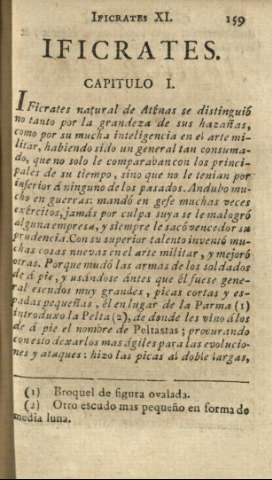 IFICRATES XI. 159
IFICRATES.
CAPITULO I.
IFicrates natural de Atenas se distinguió
no tanto por la grandeza de sus hazañas,
como por su mucha inteligencia en el arte mi-
litar, habiendo sido un general tan consuma-
do, que no solo le comparaban con los princi-
pales de su tiempo, sino que no le tenian por
inferior á ninguno de los pasados. Andubo mu-
cho en guerras: mandó en gefe muchas veces
exércitos, jamás por culpa suya se le malogró
alguna empresa, y siempre le sacó vencedor su
prudencia. Con su superior talento inventó mu-
chas cosas nuevas en el arte militar, y mejoró
otras. Porque mudó las armas de los soldados
de á pie, y usándose ántes que él fuese gene-
ral escudos muy grandes, picas cortas y es-
padas pequeñas, él en lugar de la Parma (1)
introduxo la Pelta (2), de donde les vino á los
de á pie el nombre de Peltastas; procurando
con esto dexarlos mas ágiles para las evolucio-
nes y ataques: hizo las picas al doble largas,
(1) Broquel de figura ovalada.
(2) Otro escudo mas pequeño en forma de
media luna.